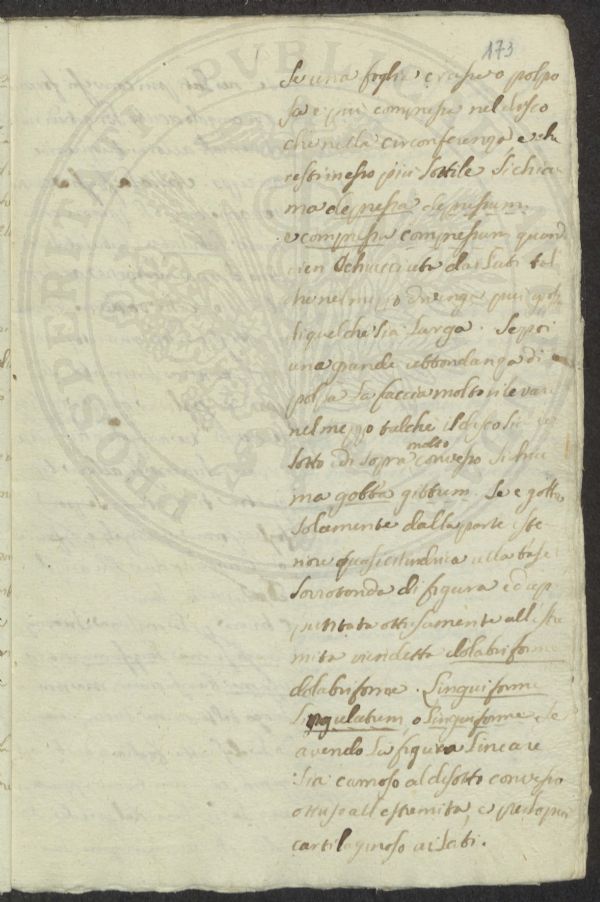 173
Se una foglia crassa o polpo
sa e piu compressa nel disco
che nella circonferenza, e che
restinesso piu sottile si chia
ma depressa depressum.
e compressa compressum quand
vien schiacciata dai Lati tal
che nel mezzo divenga piu
di quel che sia Larga. Se poi
una grande abbondanza di
polpa La faccia molto rilevar
nel mezzo talche il disco sia
sotto e di sopra molto convesso si chia
ma gobba gibbum. Se e gobba
solamente dalla parte
riore quasi cilindrica alla base
Sorrotonda di figura ed
puntata ottusamente all estre
mita viendetta dolabriforme
dolabriforme. Linguiforme
Lingulatum, o Linguiforme se
avendo La figura Lineare
sia carnoso al disotto convesso
ottuso all estremita, e
cartilaginoso ai Lati.
PROSPERITATI PUBLICAE